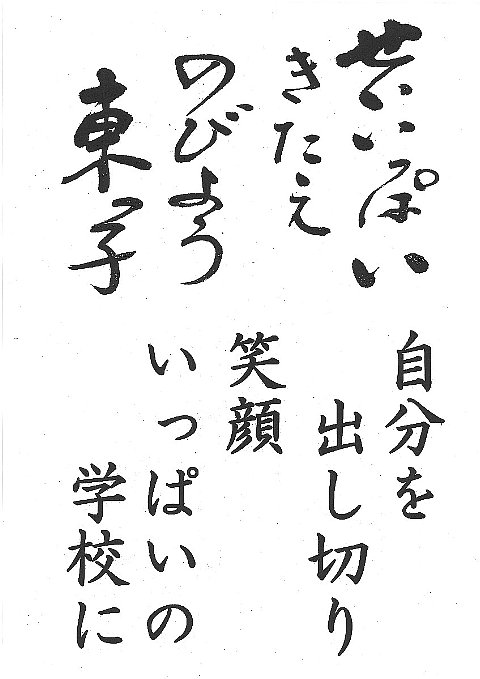 せいいっぱい
きたえ
のびよう
東っ子
自分を
出し切り
笑顔
いっぱいの
学校に